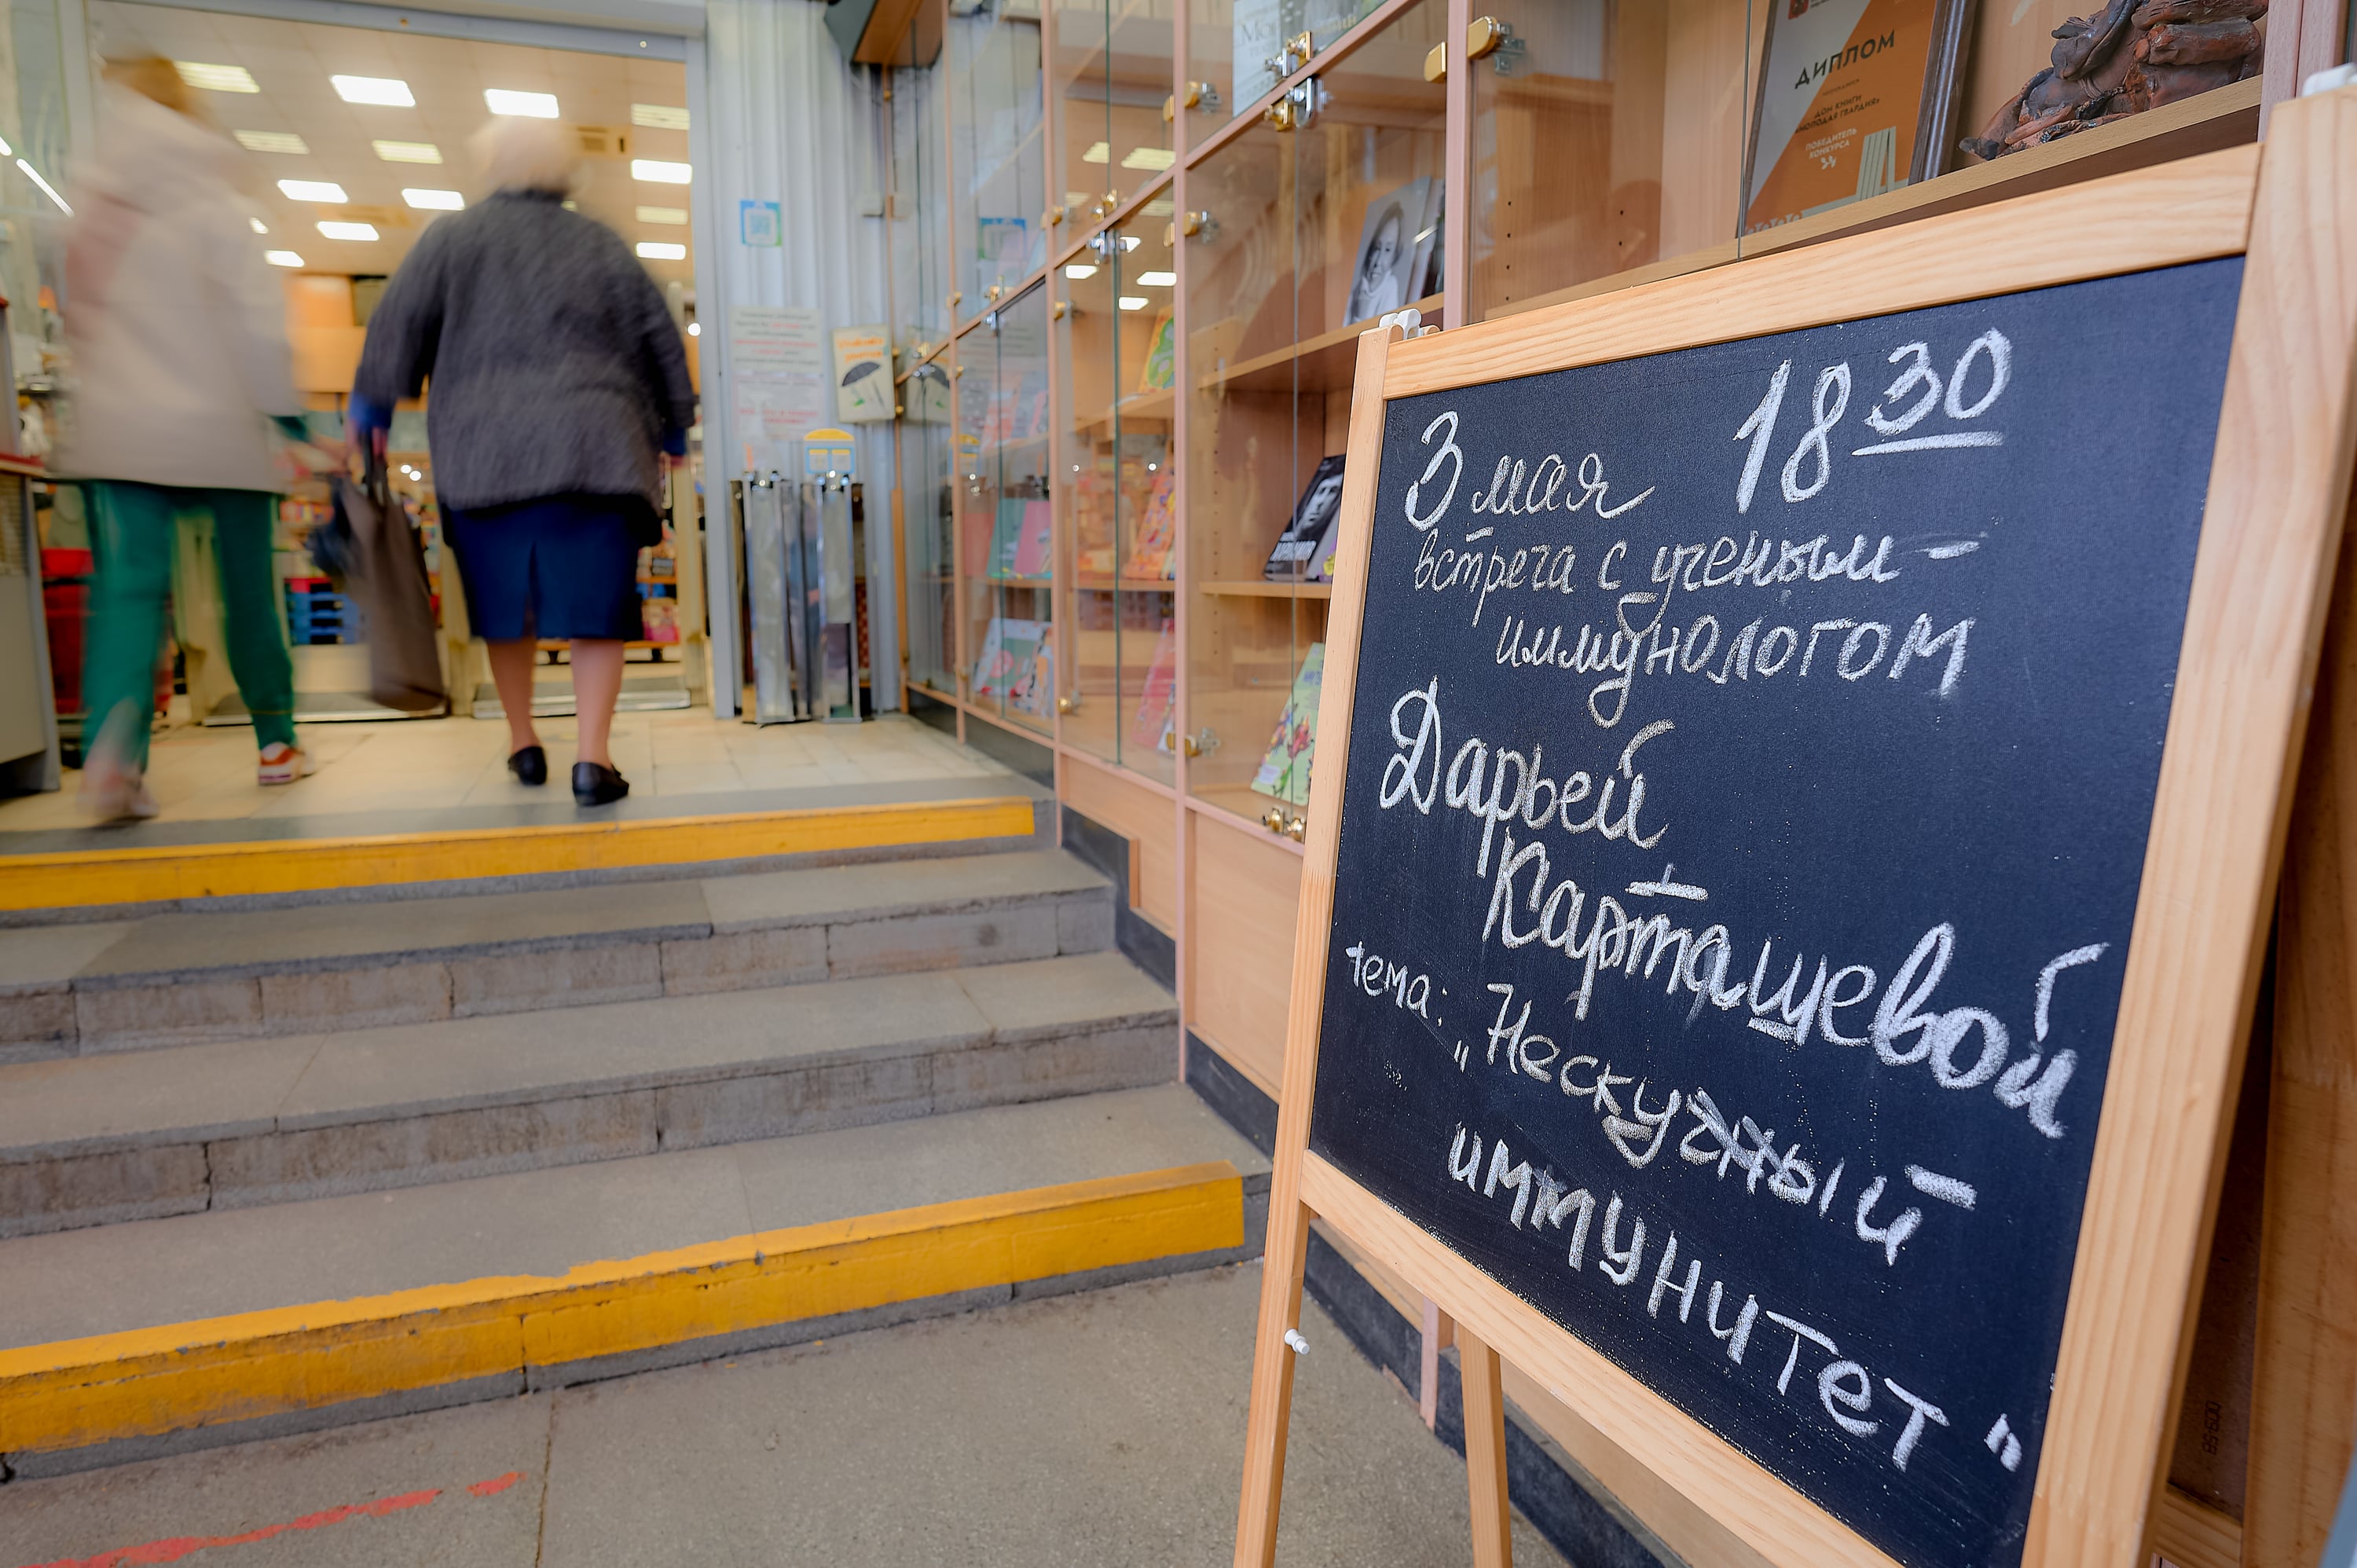 ДИПЛОМ
ДОМ КНИГИ
«МОЛОДАЯ ГВАРДИЯ»
ПОБЕДИТЕЛЬ
КОНКУРСА
3 мая 18 30
встреча с ученым-
иммунологом
Дарьей
Карташевой
тема: "Нескучный
иммунитет"